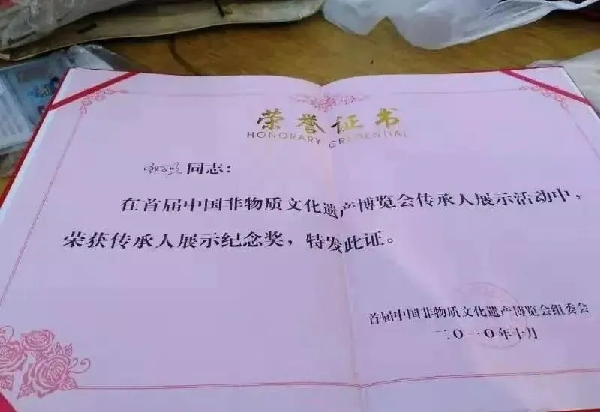 荣誉证书
HONORARY CREDENTIAL
同志：
在首届中国非物质文化遗产博览会传承人展示活动中，
荣获传承人展示纪念奖，特发此证。
首届中国非物质文化遗产博览会组委会
二〇一〇年十月